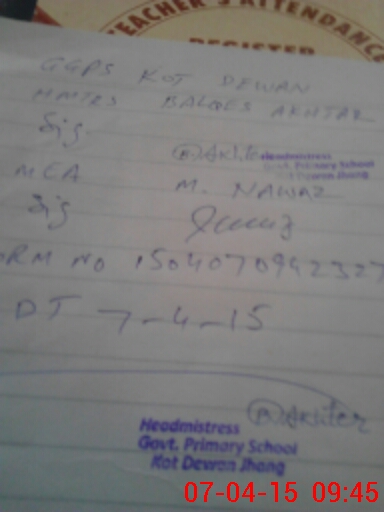 TEACHER'S ATTENDANCE
REGISTER
GGPS KOT DEWAN
HMTRS BALQES AKHTAR
Sig
Headmistress
Govt. Primary School
Kot Dewan Jhang
MEA M. NAWAZ
Sig
ORM NO 1504070942327
DT 7-4-15
B Akhter
Headmistress
Govt. Primary School
Kot Dewan Jhang
07-04-15 09:45